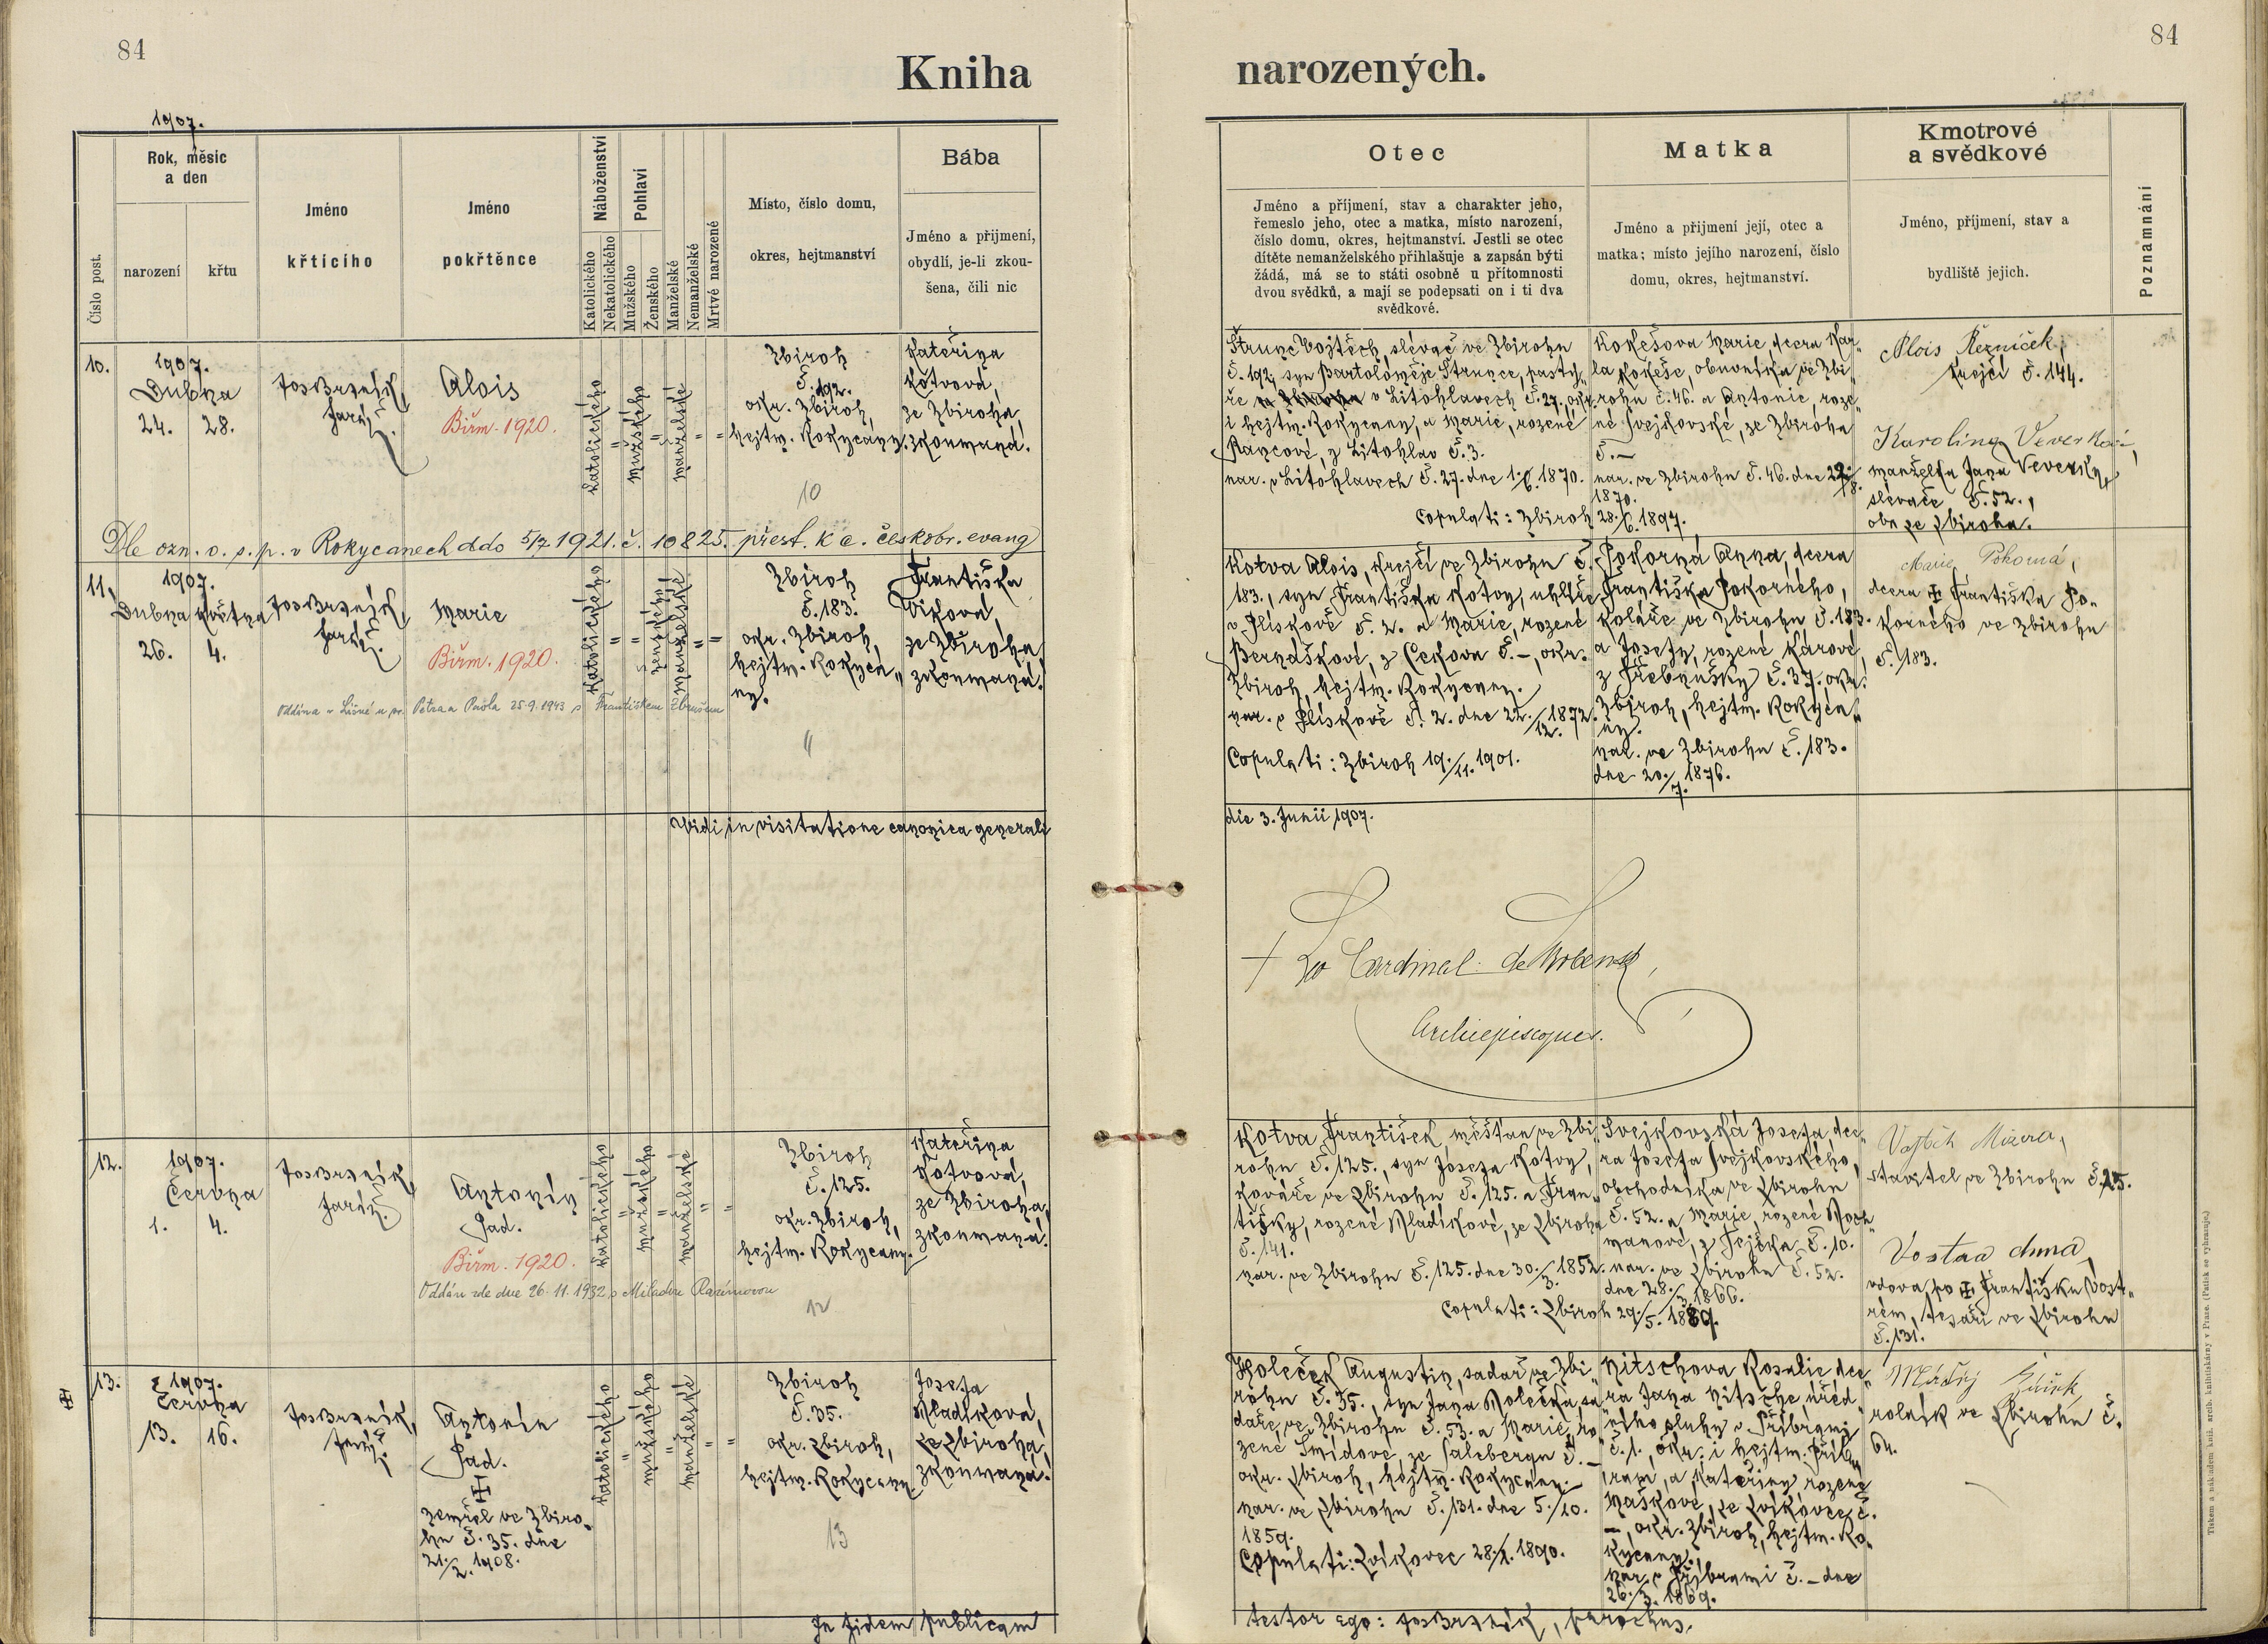 84
Kniha
narozených.
84
1907.
Číslo post.
Rok, měsíc
a den
narození
křtu
Jméno
křticího
Jméno
pokřtěnce
Náboženství
Katolického
Nekatolického
Pohlaví
Mužského
Ženského
Manželské
Nemanželské
Mrtvě narozené
Místo, číslo domu,
okres, hejtmanství
Bába
Jméno a přijmení,
obydlí, je-li zkou-
šena, čili nic
Otec
Jméno a příjmení, stav a charakter jeho,
řemeslo jeho, otec a matka, místo narození,
číslo domu, okres, hejtmanství. Jestli se otec
dítěte nemanželského přihlašuje a zapsán býti
žádá, má se to státi osobně u přítomnosti
dvou svědků, a mají se podepsati on i ti dva
svědkové.
Matka
Jméno a přijmení její, otec a
matka; místo jejího narození, číslo
domu, okres, hejtmanství.
Kmotrové
a svědkové
Jméno, příjmení, stav a
bydliště jejich.
Poznamnání
10.
1907.
Dubna
24. 28.
Jos Brzník,
farář
Alois
Biřm. 1920.
katolického
"
mužského
"
manželské
"
"
Zbiroh
č. 192.
okr. Zbiroh,
hejtm. Rokycany.
10
Kateřina
Kotvová,
ze Zbiroha,
zkoumaná.
Štrunc Vojtěch, slévač ve Zbirohu
č. 192, syn Bartoloměje Štrunce, pastý-
ře v Litohlavech č. 27, okr.
i hejtm. Rokycany, a Marie, rozené
z Litohlav č. 3.
nar. v Litohlavech č. 27. dne 1/6. 1870.
Copulati: Zbiroh 28./6. 1897.
Kokešova Marie, dcera Kar-
la Kokeše, obuvníka ve Zbi-
rohu č. 46. a Antonie, roze-
né Svejkovské, ze Zbiroha
č. –
nar. ve Zbirohu č. 46. dne 22./8.
1870.
Alois Řezníček,
krejčí č. 144.
Karolina
manželka Jana Veverky,
slévače č. 52.,
oba ze Zbiroha.
Dle ozn. o. s. p. v Rokycanech ddo 5/7 1921. č. 10825. přest. k c. českobr. evang
11.
1907.
Dubna Května
26. 4.
Jos Brzník,
farář.
Marie
Biřm. 1920.
Oddána v Líšné u sv. Petra a Pavla 25.9.1943 s Františkem
katolického
"
"
ženského
manželské
"
"
Zbiroh
č. 183.
okr. Zbiroh,
hejtm. Rokyca-
ny.
11
Františka
Vlková,
ze Zbiroha,
zkoumaná.
Kotva Alois, krejčí ve Zbirohu č.
183., syn Františka Kotvy, uhlíře
v Plískově č. 2. a Marie, rozené
Bernáškové, z Cekova č. –, okr.
Zbiroh, hejtm. Rokycany.
nar. v Plískově č. 2. dne 22./12. 1872.
Copulati: Zbiroh 19./11. 1901.
Pokorná Anna, dcera
Františka Pokorného,
koláře ve Zbirohu č. 183.
a Josefy, rozené Kárové,
z Třebnušky č. 37, okr.
Zbiroh, hejtm. Rokyca-
ny.
nar. ve Zbirohu č. 183.
dne 20./7. 1876.
Marie Pokorná,
dcera ‡ Františka Po-
korného ve Zbirohu
č. 183.
Vidi in visitatione canonica generali
die 3. Junii 1907.
+ Leo Cardinal. de Skrbenský,
Archiepiscopus.
12.
1907.
Června
1. 4.
Jos Brzník,
farář
Antonín
Pad.
Biřm. 1920.
Oddán zde dne 26.11.1932 s Miladou
katolického
"
mužského
"
manželské
"
"
Zbiroh
č. 125.
okr. Zbiroh,
hejtm. Rokycany.
12
Kateřina
Kotvová,
ze Zbiroha,
zkoumaná.
Kotva František, měšťan ve Zbi-
rohu č. 125., syn Josefa Kotvy,
kováře ve Zbirohu č. 125. a Fran-
tišky, rozené Mladíkové, ze Zbiroha
č. 141.
nar. ve Zbirohu č. 125. dne 30./3. 1852.
Copulati: Zbiroh 29./5. 1889.
Svejkovská Josefa, dce-
ra Josefa Svejkovského,
obchodníka ve Zbirohu
č. 52. a Marie, rozené Hoch-
manové, z Tejčka č. 10.
nar. ve Zbirohu č. 52.
dne 28./3. 1866.
Vojtěch
stavitel ve Zbirohu č. 25.
vdova po ‡ Františku Vost-
rém, tesaři ve Zbirohu
č. 131.
‡
13.
1907.
Června
13. 16.
Jos Brzník,
farář.
Antonín
Pad.
‡
zemřel ve Zbiro-
hu č. 35. dne
21./2. 1908.
katolického
"
mužského
"
manželské
"
"
Zbiroh
č. 35.
okr. Zbiroh,
hejtm. Rokycany
13
Josefa
Mladíková,
ze Zbiroha,
zkoumaná.
Holeček Augustin, sadař ve Zbi-
rohu č. 35., syn Jana Holečka, sa-
daře, ve Zbirohu č. 53. a Marie, ro-
zené Šmídové, ze Salzbergu č. –
okr. Zbiroh, hejtm. Rokycany.
nar. ve Zbirohu č. 131. dne 5./10.
1859.
Copulati: Zvíkovec 28./1. 1890.
Nitschova Rosalie, dce-
ra Jana Nitsche, úřed-
ního sluhy v Příbrami
č. 1., okr. i hejtm. Příb-
ram, a Kateřiny rozené
Maškové, ze Zvíkovce č.
–, okr. Zbiroh, hejtm. Ro-
kycany.
nar. v Příbrami č. – dne
26./3. 1869.
Matěj
rolník ve Zbirohu č.
64.
In fidem publicam
testor ego: Jos Brzník, parochus.
Tiskem a nákladem kníž. arcib. knihtiskárny v Praze. (Patisk se vyhrazuje.)